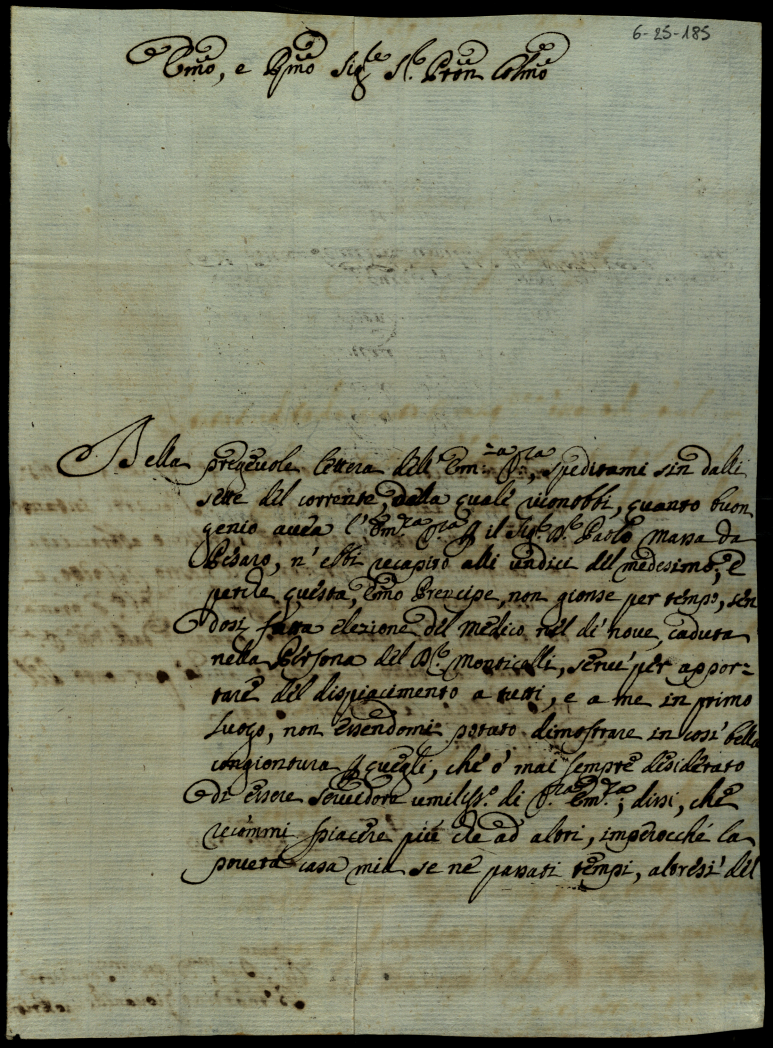 6-25-185
Emo, e Rmo Sigre Sr. Pron Colmo
Della pregevole lettera dell' Emza Vra, speditami sin dalli
sette del corrente, dalla quale riconobbi, quanto buon
genio avea l'Emza Vra p il Sigr. Dr. Paolo Massa da
Pesaro, n' ebbi recapito alli undici del medesimo; e
perche questa, Emo Prencipe, non gionse per tempo, sen
dosi fatta elezione del Medico nel di' nove, caduta
nella Persona del Dr. Monticelli, serve' per appor=
tare del dispiacimento a tutti, e a me in primo
luogo, non essendomi potuto dimostrare in cosi' bella
congiontura p quegli, che o' mai sempre desiderato
di essere servidore umiliss.o di Vra Emza; dissi, che
recommi spiacere più che ad altri, imperocché la
povera casa mia se ne' passati tempi, altresi' del